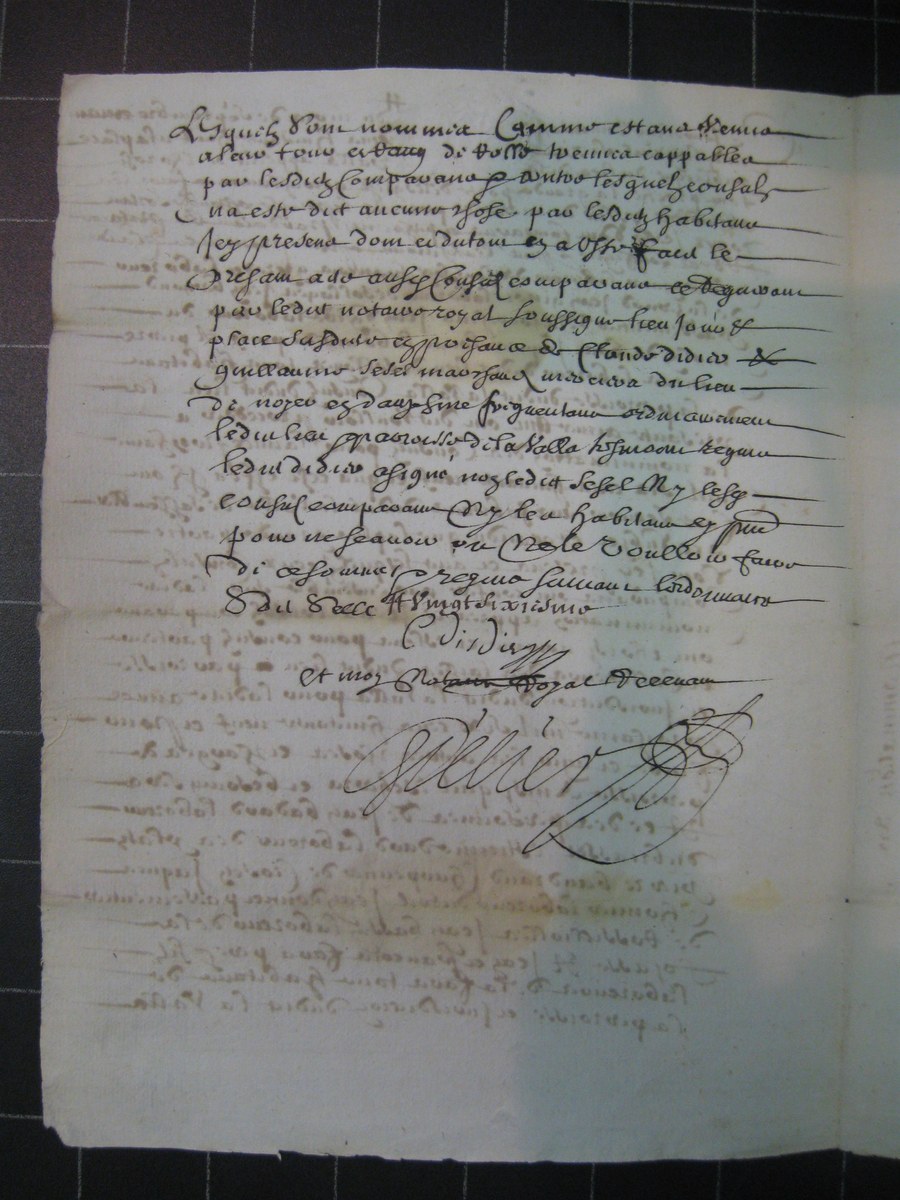 Lesquelz sont nommés comme estans
a leur tour et de
par lesdictz comparans contre lesquelz consulz
na esté dict aucune chose par lesdictz habitans
Icy presens dont et du tout en a esté faict le
présant acte ausdictz consulz comparans ce requerant
par ledict notaire royal soussigné lieu jour &
place susdicte en presance de Claude didier &
guillaume sesel marchandz merciers du lieu
de noyer en daupfiné frequentans ordinairement
ledict lieu parroisse de la Valla tesmoins requis
ledict didier a signé non ledict sesel Ny lesdictz
consulz comparans Ny les habitans
pour ne scavoir ou Ne le voulloir faire
de ce sommés & requis suivant lordonnance
vingt sixiesme
C didier
et moy Notaire Royal Recevant